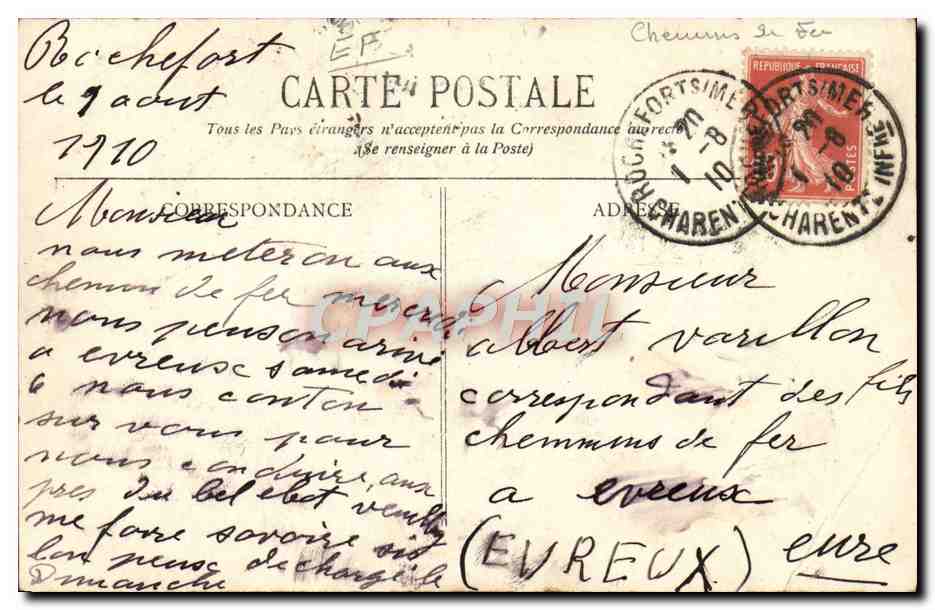 Rochefort
le 9 aout
1910
EP
Chemins de Fer
CARTE POSTALE
Tous les Pays étrangers n'acceptent pas la Correspondance au recto
(Se renseigner à la Poste)
CORRESPONDANCE
Monsieur
nous meteron aux
chemin de fer mercredi
nous penson arivé
a evreux samedi
é nous conton
sur vous pour
nous conduire aux
pres du bel ebat
me faire savoire si
lon peus decharge le
Dimanche
ADRESSE
Monsieur
albert varillon
correspondant des fils
chemmins de fer
a evreux
(EVREUX) eure
REPUBLIQUE FRANÇAISE
POSTES
ROCHEFORT S/MER
20
1 -8
10
CHARENTE
ROCHEFORT S/MER
20
1 -8
10
CHARENTE INFRE
CPAPHIL